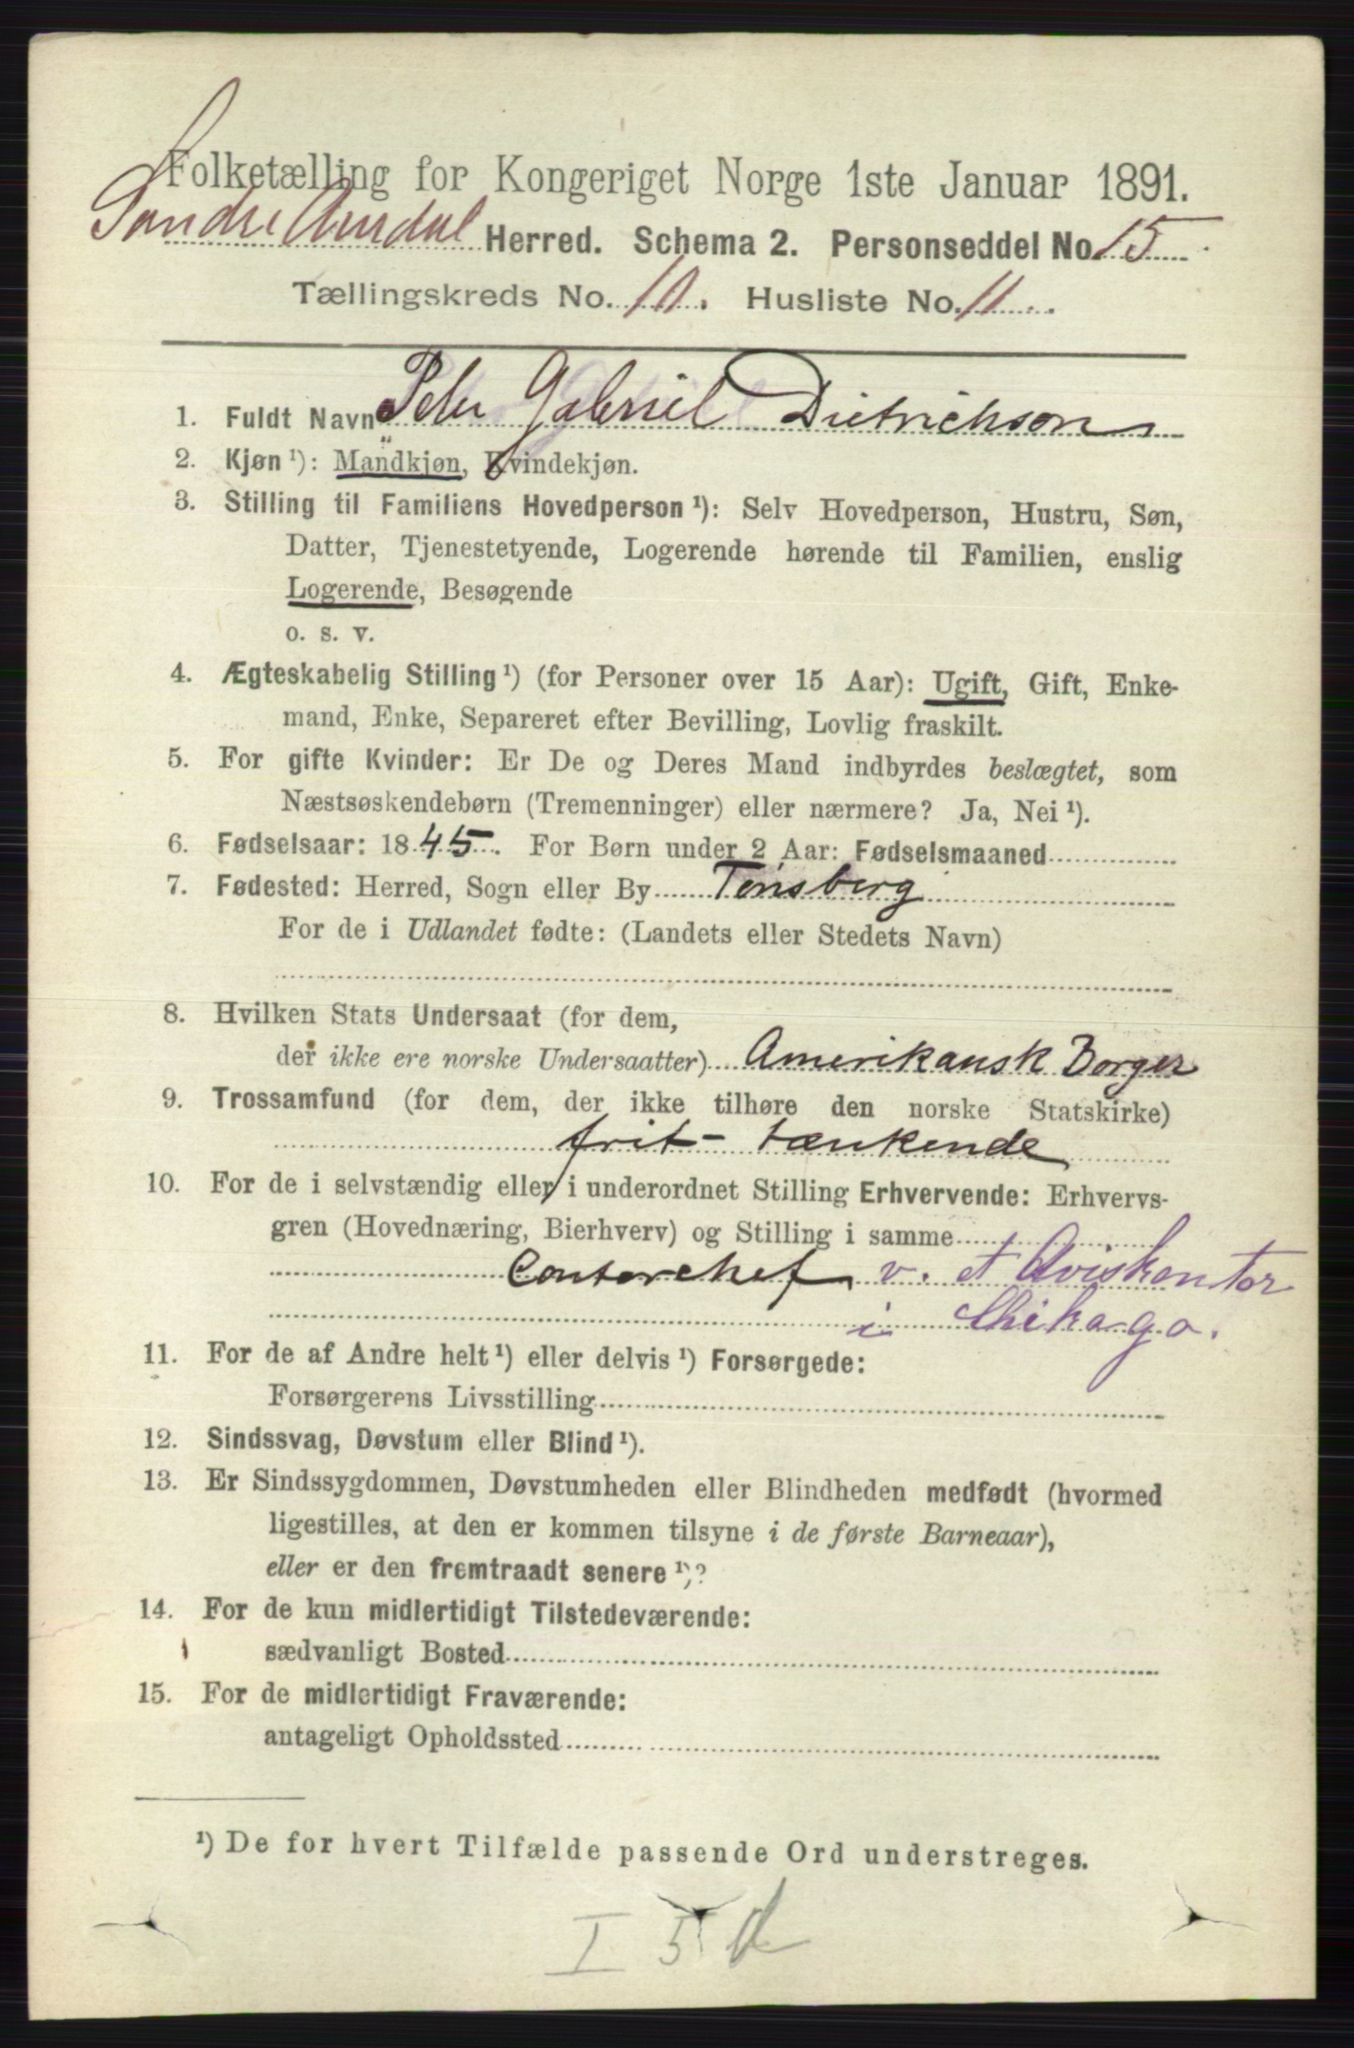 Folketælling for Kongeriget Norge 1ste Januar 1891.
Søndre Aurdal Herred. Schema 2. Personseddel No. 15
Tællingskreds No. 10. Husliste No. 11.
1. Fuldt Navn Peder Gabriel Dietrichson
2. Kjøn ¹): Mandkjøn, Kvindekjøn.
3. Stilling til Familiens Hovedperson ¹): Selv Hovedperson, Hustru, Søn,
Datter, Tjenestetyende, Logerende hørende til Familien, enslig
Logerende, Besøgende
o. s. v.
4. Ægteskabelig Stilling ¹) (for Personer over 15 Aar): Ugift, Gift, Enke-
mand, Enke, Separeret efter Bevilling, Lovlig fraskilt.
5. For gifte Kvinder: Er De og Deres Mand indbyrdes beslægtet, som
Næstsøskendebørn (Tremenninger) eller nærmere? Ja, Nei ¹).
6. Fødselsaar: 1845. For Børn under 2 Aar: Fødselsmaaned
7. Fødested: Herred, Sogn eller By Tønsberg
For de i Udlandet fødte: (Landets eller Stedets Navn)
8. Hvilken Stats Undersaat (for dem,
der ikke ere norske Undersaatter) Amerikansk Borger
9. Trossamfund (for dem, der ikke tilhøre den norske Statskirke)
frit-tænkende
10. For de i selvstændig eller i underordnet Stilling Erhvervende: Erhvervs-
gren (Hovednæring, Bierhverv) og Stilling i samme
Contorchef v. et Aviskontor
i Chikago.
11. For de af Andre helt ¹) eller delvis ¹) Forsørgede:
Forsørgerens Livsstilling
12. Sindssvag, Døvstum eller Blind ¹).
13. Er Sindssygdommen, Døvstumheden eller Blindheden medfødt (hvormed
ligestilles, at den er kommen tilsyne i de første Barneaar),
eller er den fremtraadt senere ¹)?
14. For de kun midlertidigt Tilstedeværende:
sædvanligt Bosted
15. For de midlertidigt Fraværende:
antageligt Opholdssted
¹) De for hvert Tilfælde passende Ord understreges.
I 5 d